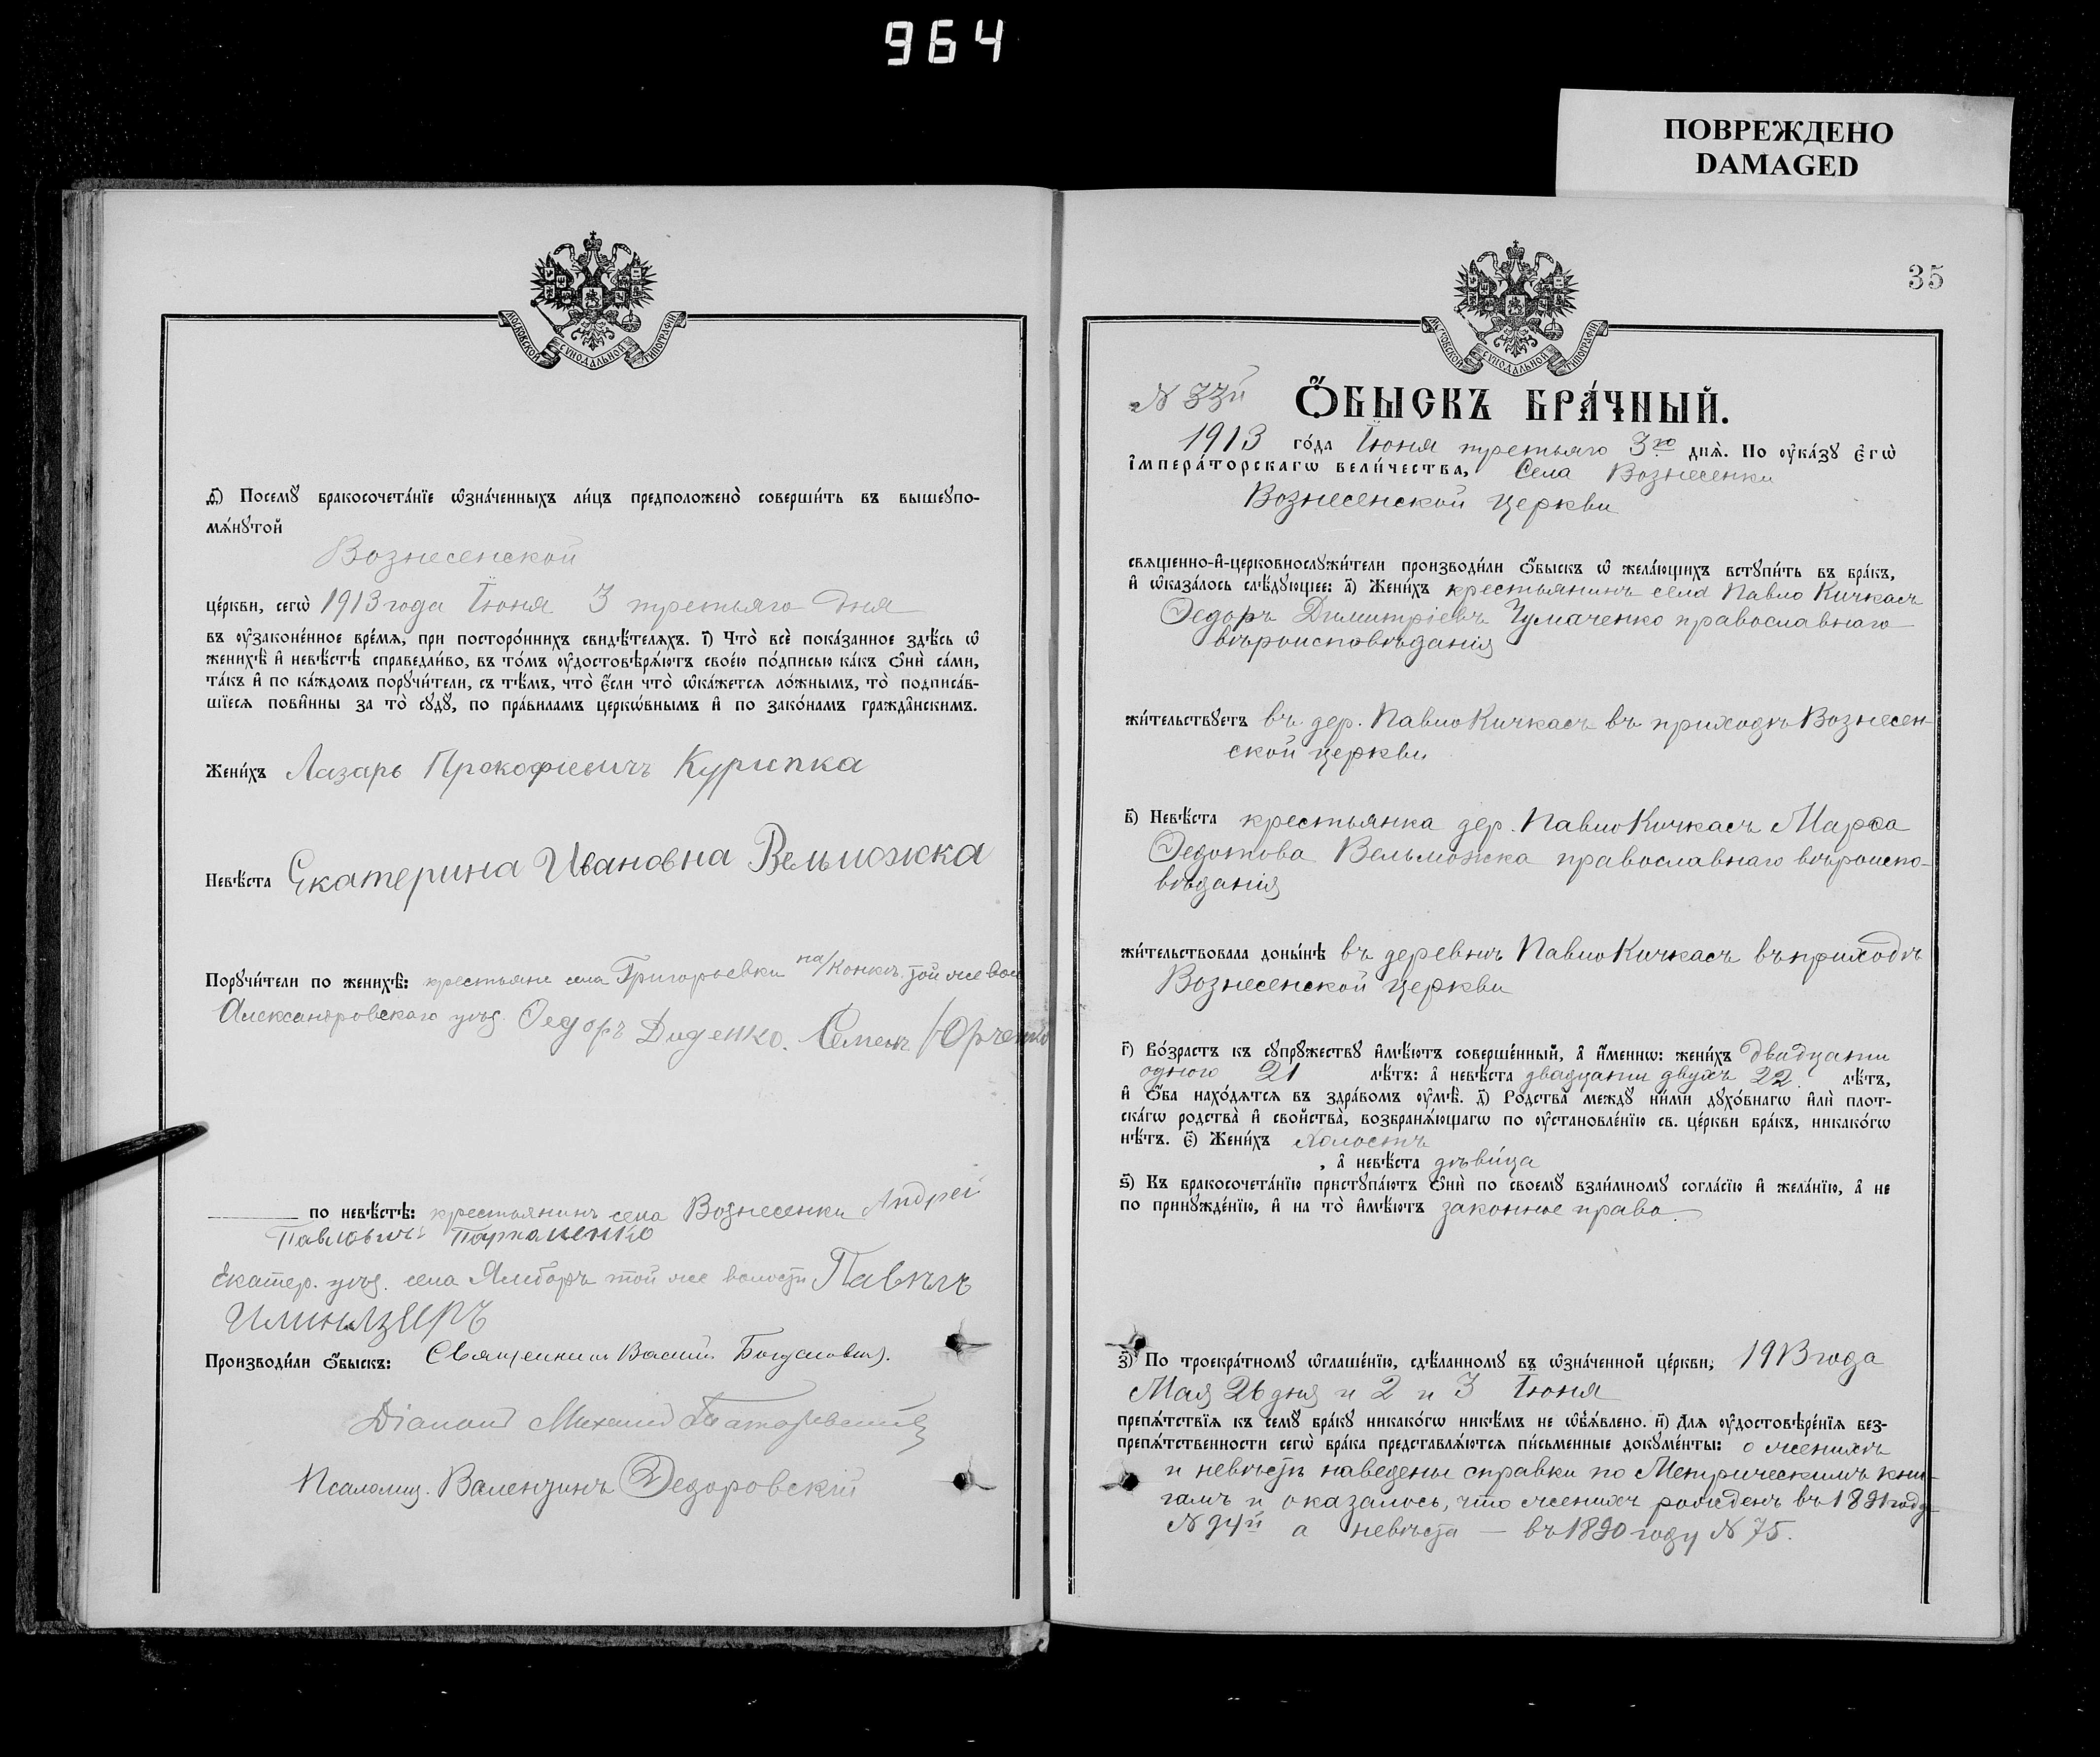 964
ПОВРЕЖДЕНО
DAMAGED
МОСКОВСКОЙ СѴНОДАЛЬНОЙ ТИПОГРАФІИ
д҃і) Посемꙋ бракосочета́нїе ѡзна́ченныхъ ли́цъ предположено̀ соверши́ть въ вышеꙋпо-
мѧ́нꙋтой
Вознесенской
це́ркви, сегѡ̀ 1913 года Іюня 3 третьяго дня
въ ᲂу҆законе́нное вре́мѧ, при посторо́ннихъ свидѣ́телѧхъ. і҃) Что̀ всѐ пока́занное здѣ́сь ѡ҆
женихѣ̀ и҆ невѣ́стѣ справедли́во, въ то́мъ ᲂу҆достовѣрѧ́ютъ свое́ю по́дписью ка́къ ѻ҆нѝ са́ми,
та́къ и҆ по ка́ждомъ порꙋчи́тели, съ тѣ́мъ, что̀ є҆́сли что̀ ѡ҆ка́жетсѧ ло́жнымъ, то̀ подписа́в-
шїесѧ пови́нны за то̀ сꙋдꙋ̀, по пра́виламъ церко́внымъ и҆ по зако́намъ гражда́нскимъ.
Жени́хъ Лазарь Прокофіевичъ Курипка
Невѣ́ста Екатерина Ивановна Вельможка
Порꙋчи́тели по женихѣ̀: крестьяне села Григорьевки на/Конкѣ той же вол
Александровскаго уѣз. Ѳедоръ Диденко. Семенъ Юрченко
по невѣ́стѣ: крестьянинъ села Вознесенки Андрей
Павловичъ Пархоменко
Екатер. уѣз. села Ямборъ той же волости Павелъ
Производи́ли ѻ҆́быскъ: Священникъ Василій Богдановичъ.
Діаконъ Михаилъ
Псаломщ. Валентинъ Ѳедоровскій
35
МОСКОВСКОЙ СѴНОДАЛЬНОЙ ТИПОГРАФІИ
№ 33й Ѻ҆́БЫСКЪ БРА́ЧНЫЙ.
1913 го́да Іюня третьяго 3го днѧ̀. По ᲂу҆ка́зꙋ є҆гѡ̀
і҆мпера́торскагѡ вели́чества, Села Вознесенки
Вознесенской церкви
свѧщенно-и҆-церковнослꙋжи́тели производи́ли ѻ҆́быскъ ѡ҆ жела́ющихъ встꙋпи́ть въ бра́къ,
и҆ ѡ҆каза́лось слѣ́дꙋющее: а҃) Жени́хъ крестьянинъ села Павло Кичкасъ
Ѳедоръ Димитріевъ Чумаченко православнаго
вѣроисповѣданія
жи́тельствꙋетъ въ дер. Павло Кичкасъ въ приходѣ Вознесен-
ской церкви
в҃) Невѣ́ста крестьянка дер. Павло Кичкасъ Марѳа
Ѳедотова Вельможка православнаго вѣроиспо-
вѣданія
жи́тельствовала донынѣ въ деревнѣ Павло Кичкасъ въ приходѣ
Вознесенской церкви
г҃) Во́зрастъ къ сꙋпрꙋ́жествꙋ и҆мѣ́ютъ соверше́нный, а҆ и҆́меннѡ: жени́хъ двадцати
одного 21 лѣ́тъ: а҆ невѣ́ста двадцати двухъ 22. лѣ́тъ,
и҆ ѻ҆́ба нахо́дѧтсѧ въ здра́вомъ ᲂу҆мѣ̀. д҃) Родства̀ междꙋ ни́ми дꙋхо́внагѡ и҆лѝ плот-
ска́гѡ родства̀ и҆ свойства̀, возбранѧ́ющагѡ по ᲂу҆становле́нїю св. це́ркви бра́къ, никако́гѡ
нѣ́тъ. є҃) Жени́хъ холостъ
, а҆ невѣ́ста дѣвица
ѕ҃) Къ бракосочета́нїю пристꙋпа́ютъ ѻ҆нѝ по своемꙋ̀ взаи́мномꙋ согла́сїю и҆ жела́нїю, а҆ не
по принꙋжде́нїю, и҆ на то̀ и҆мѣ́ютъ законное право.
з҃) По троекра́тномꙋ ѡ҆глаше́нїю, сдѣ́ланномꙋ въ ѡ҆зна́ченной це́ркви; 1913 года
Мая 26 дня и 2 и 3 Іюня
препѧ́тствїѧ къ семꙋ̀ бра́кꙋ никако́гѡ никѣ́мъ не ѡ҆б̾ѧ́влено. и҃) Длѧ ᲂу҆достовѣре́нїѧ без-
препѧ́тственности сегѡ̀ бра́ка представлѧ́ютсѧ пи́сьменные докꙋме́нты: о женихѣ
и невѣстѣ наведены справки по Метрическимъ кни-
гамъ и оказалось, что женихъ рожденъ въ 1891 году
№ 94й а невѣста — въ 1890 году № 75.